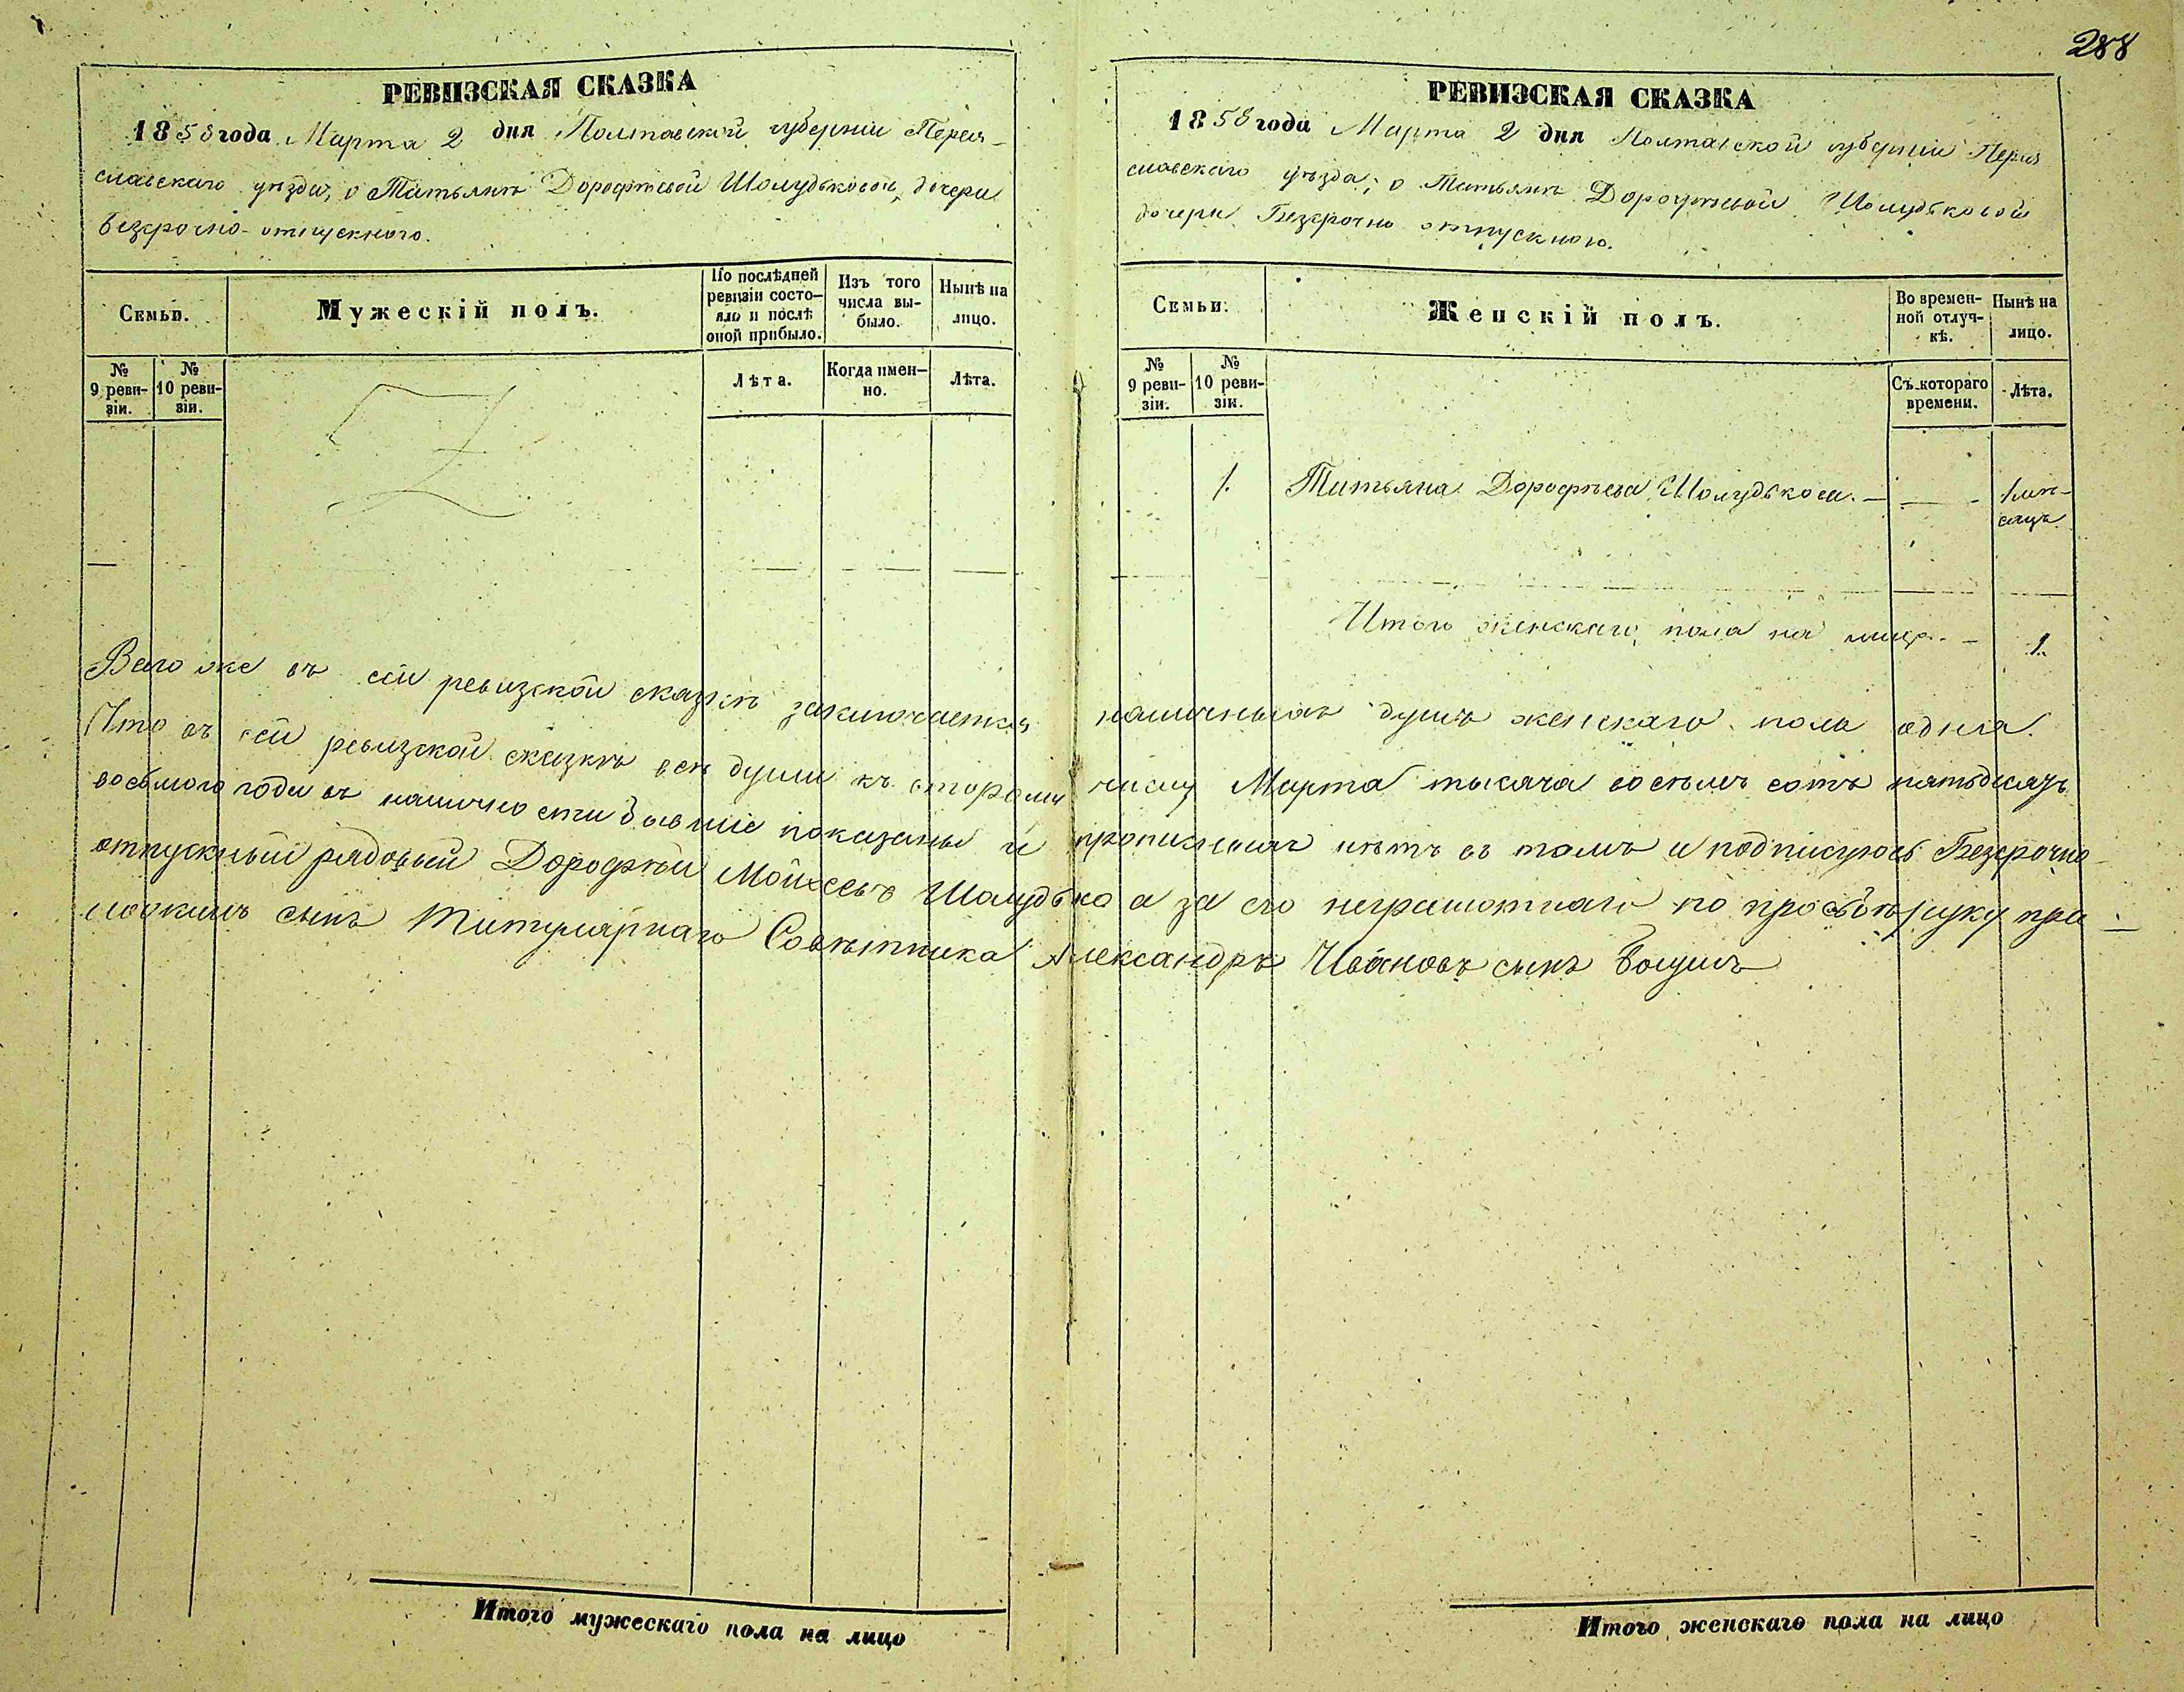 288
РЕВИЗСКАЯ СКАЗКА
1858 года Марта 2 дня Полтавской губерніи Перея-
славскаго уѣзда, о Татьянѣ Дорофѣевой Шолудьковой, дочери
безсрочно-отпускного.
Семьи.
Мужескій полъ.
По послѣдней ревизіи состо-яло и послѣ оной прибыло.
Изъ того числа вы-было.
Нынѣ на лицо.
№ 9 реви-зіи.
№ 10 реви-зіи.
Лѣта.
Когда имен-но.
Лѣта.
РЕВИЗСКАЯ СКАЗКА
1858 года Марта 2 дня Полтавской губерніи Перея
славскаго уѣзда, о Татьянѣ Дорофѣевой Шолудьковой
дочери Безсрочно отпускного.
Семьи.
Женскій полъ.
Во времен-ной отлуч-кѣ.
Нынѣ на лицо.
№ 9 реви-зіи.
№ 10 реви-зіи.
Съ котораго времени.
Лѣта.
1. Татьяна Дорофѣева Шолудькова. — — - 1 мѣ-
сяцъ
Итого женскаго пола на лицо. - 1.
Всего же въ сей ревизской сказкѣ заключается наличныхъ душъ женскаго пола одна.
Что въ сей ревизской сказкѣ всѣ души къ второму числу Марта тысяча восемь сотъ пятьдесятъ
восьмого года въ наличности бывшіе показаны и прописныхъ нѣтъ въ томъ и подписуюсь Безсрочно-
отпускный рядовый Дорофѣй Мойсеевъ Шолудько а за его неграмотнаго по прозьбѣ руку при-
ложилъ сынъ Титулярнаго Совѣтника Александръ Ивановъ сынъ
Итого мужескаго пола на лицо
Итого женскаго пола на лицо